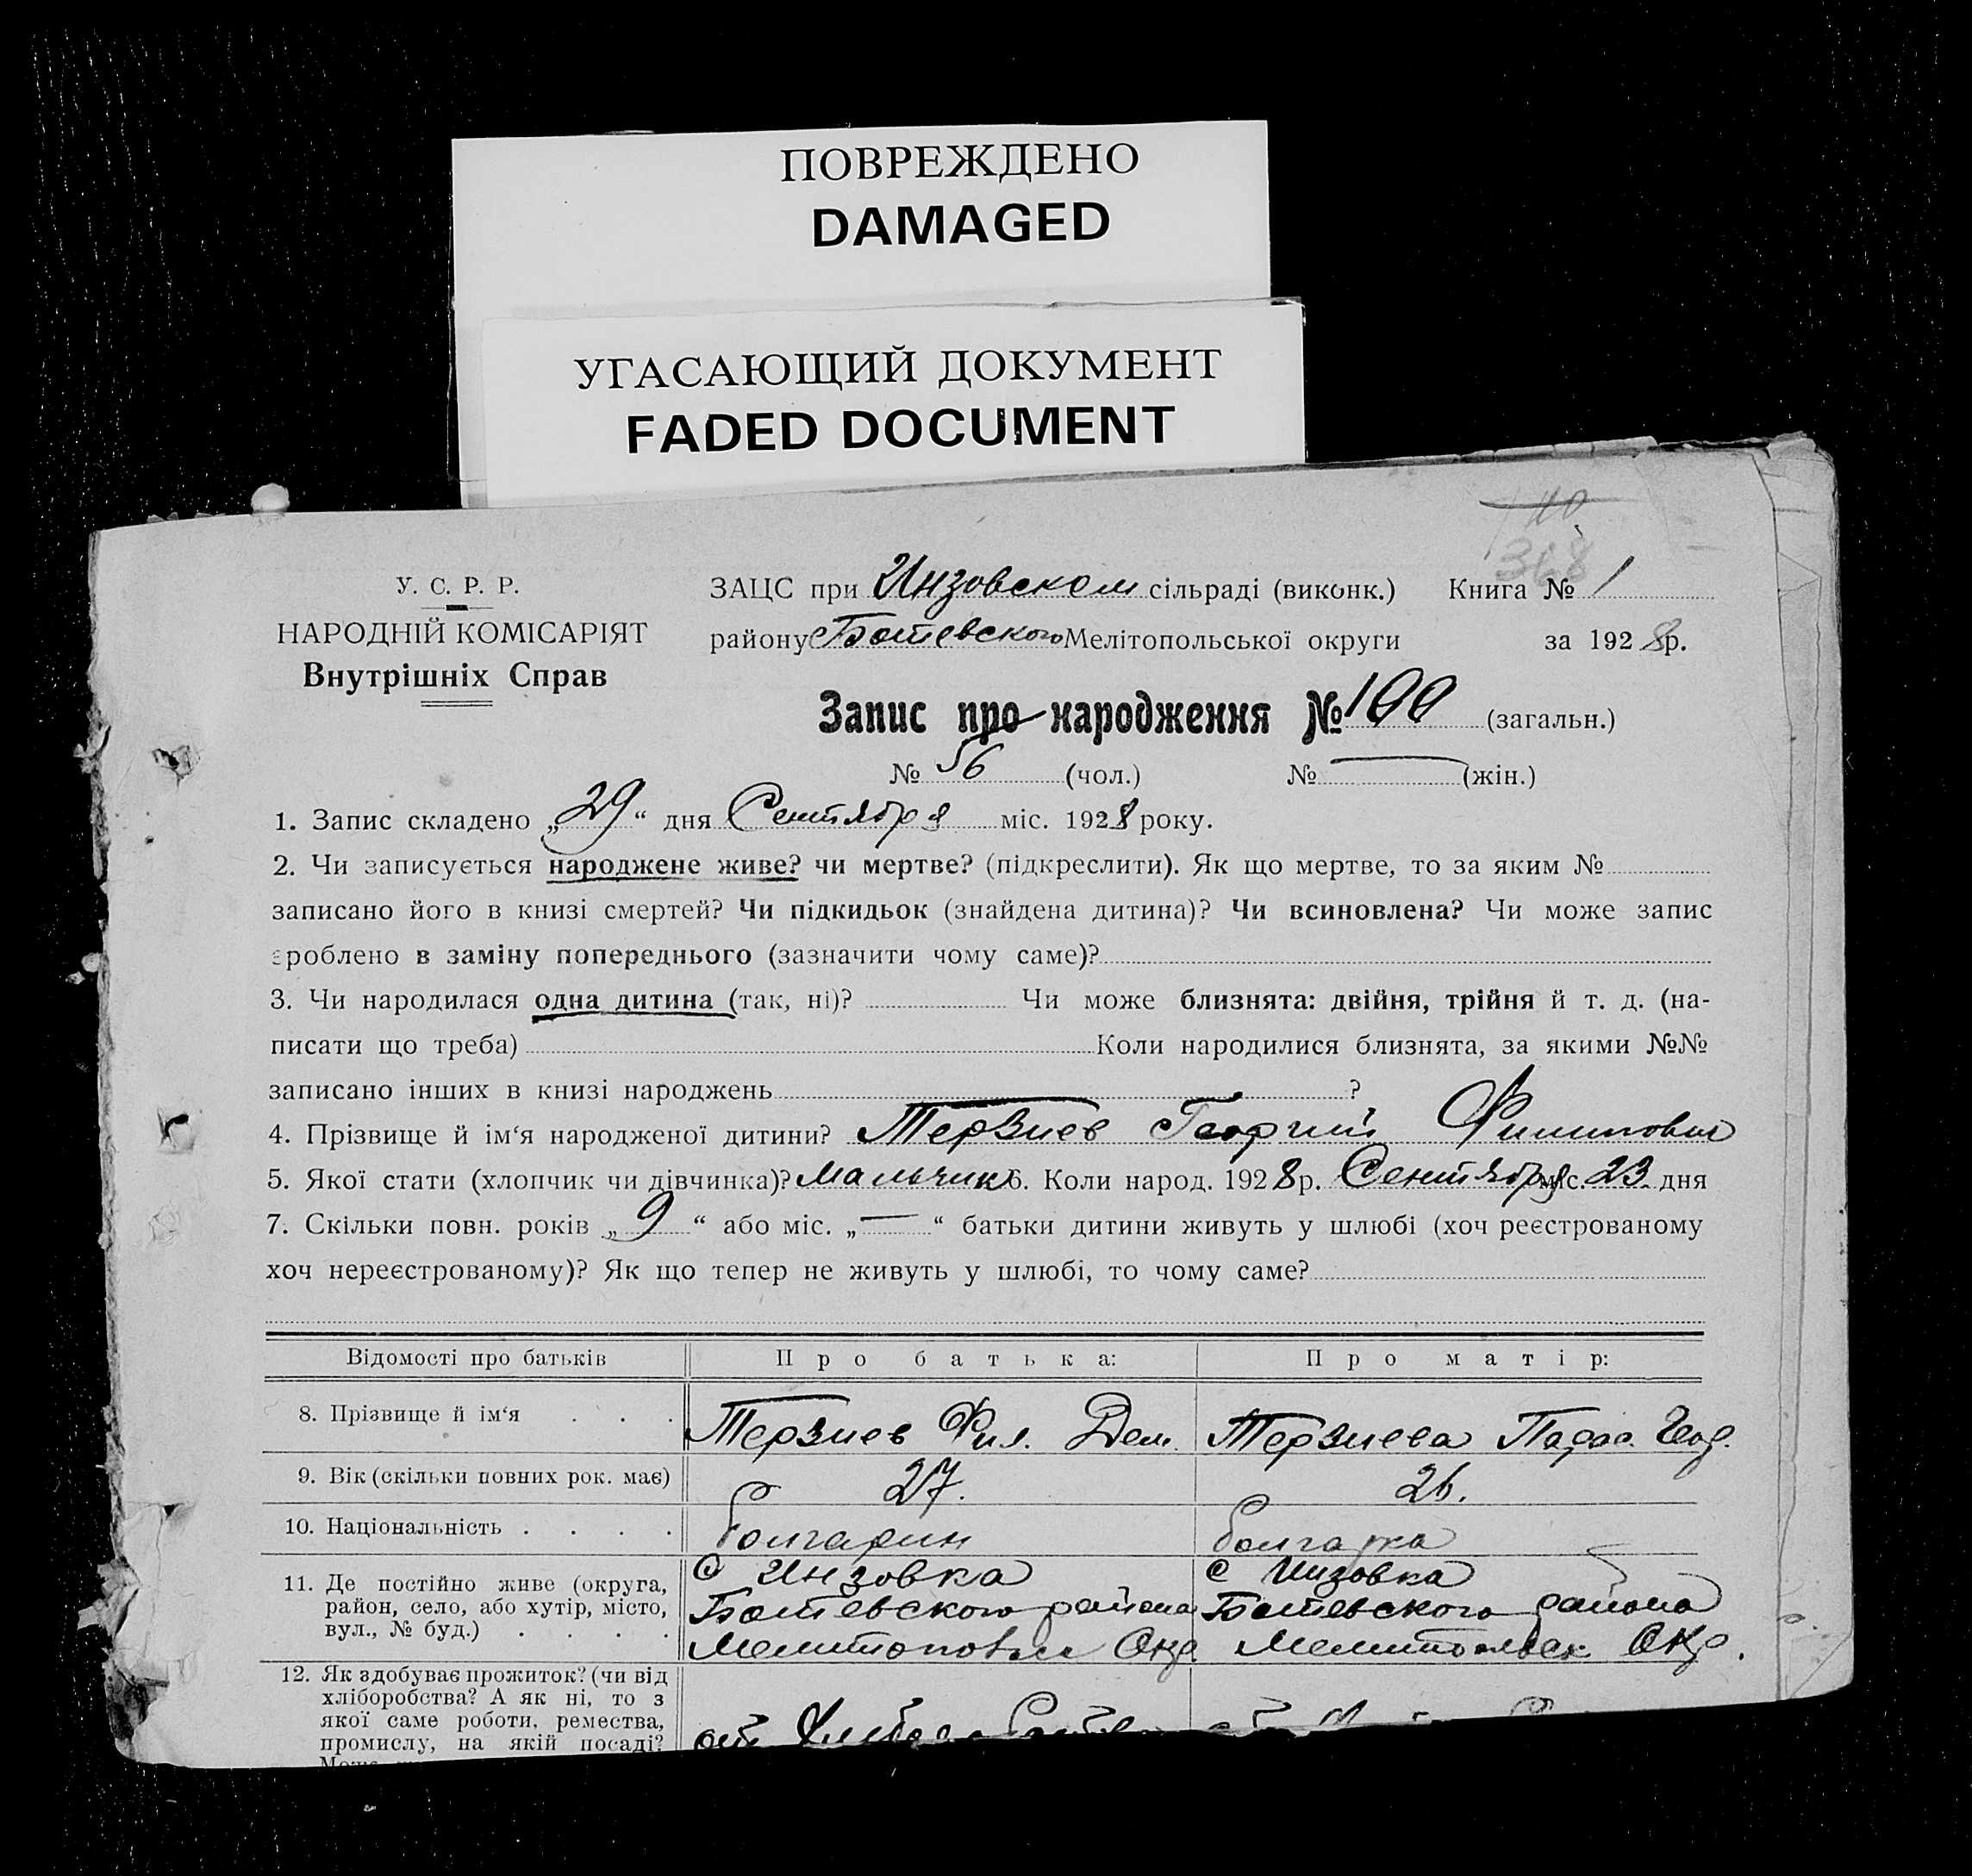 ПОВРЕЖДЕНО
DAMAGED
УГАСАЮЩИЙ ДОКУМЕНТ
FADED DOCUMENT
110
368
У. С. Р. Р.
НАРОДНІЙ КОМІСАРІЯТ
Внутрішніх Справ
ЗАЦС при Инзовском сільраді (виконк.) Книга № 1
району Ботевского Мелітопольської округи за 1928 р.
Запис про народження № 100 (загальн.)
№ 56 (чол.) № — (жін.)
1. Запис складено „29“ дня Сентября міс. 1928 року.
2. Чи записується народжене живе? чи мертве? (підкреслити). Як що мертве, то за яким №
записано його в книзі смертей? Чи підкидьок (знайдена дитина)? Чи всиновлена? Чи може запис
зроблено в заміну попереднього (зазначити чому саме)?
3. Чи народилася одна дитина (так, ні)? Чи може близнята: двійня, трійня й т. д. (на-
писати що треба) Коли народилися близнята, за якими №№
записано інших в книзі народжень ?
4. Прізвище й ім‘я народженої дитини? Терзиев Георгий Филипович
5. Якої стати (хлопчик чи дівчинка)? Мальчик 6. Коли народ. 1928 р. Сентября міс. 23 дня
7. Скільки повн. років „9“ або міс. „—“ батьки дитини живуть у шлюбі (хоч реєстрованому
хоч нереєстрованому)? Як що тепер не живуть у шлюбі, то чому саме?
Відомості про батьків Про батька: Про матір:
8. Прізвище й ім‘я . . . Терзиев Фил. Дем. Терзиева Парас. Геор.
9. Вік (скільки повних рок. має) 27. 26.
10. Національність . . . . болгарин болгарка
11. Де постійно живе (округа, с Инзовка с Инзовка
район, село, або хутір, місто, Ботевского района Ботевского района
вул., № буд.) . . . . Мелитопольск Окр. Мелитопольск Окр.
12. Як здобуває прожиток? (чи від
хліборобства? А як ні, то з
якої саме роботи, ремества,
промислу, на якій посаді? от